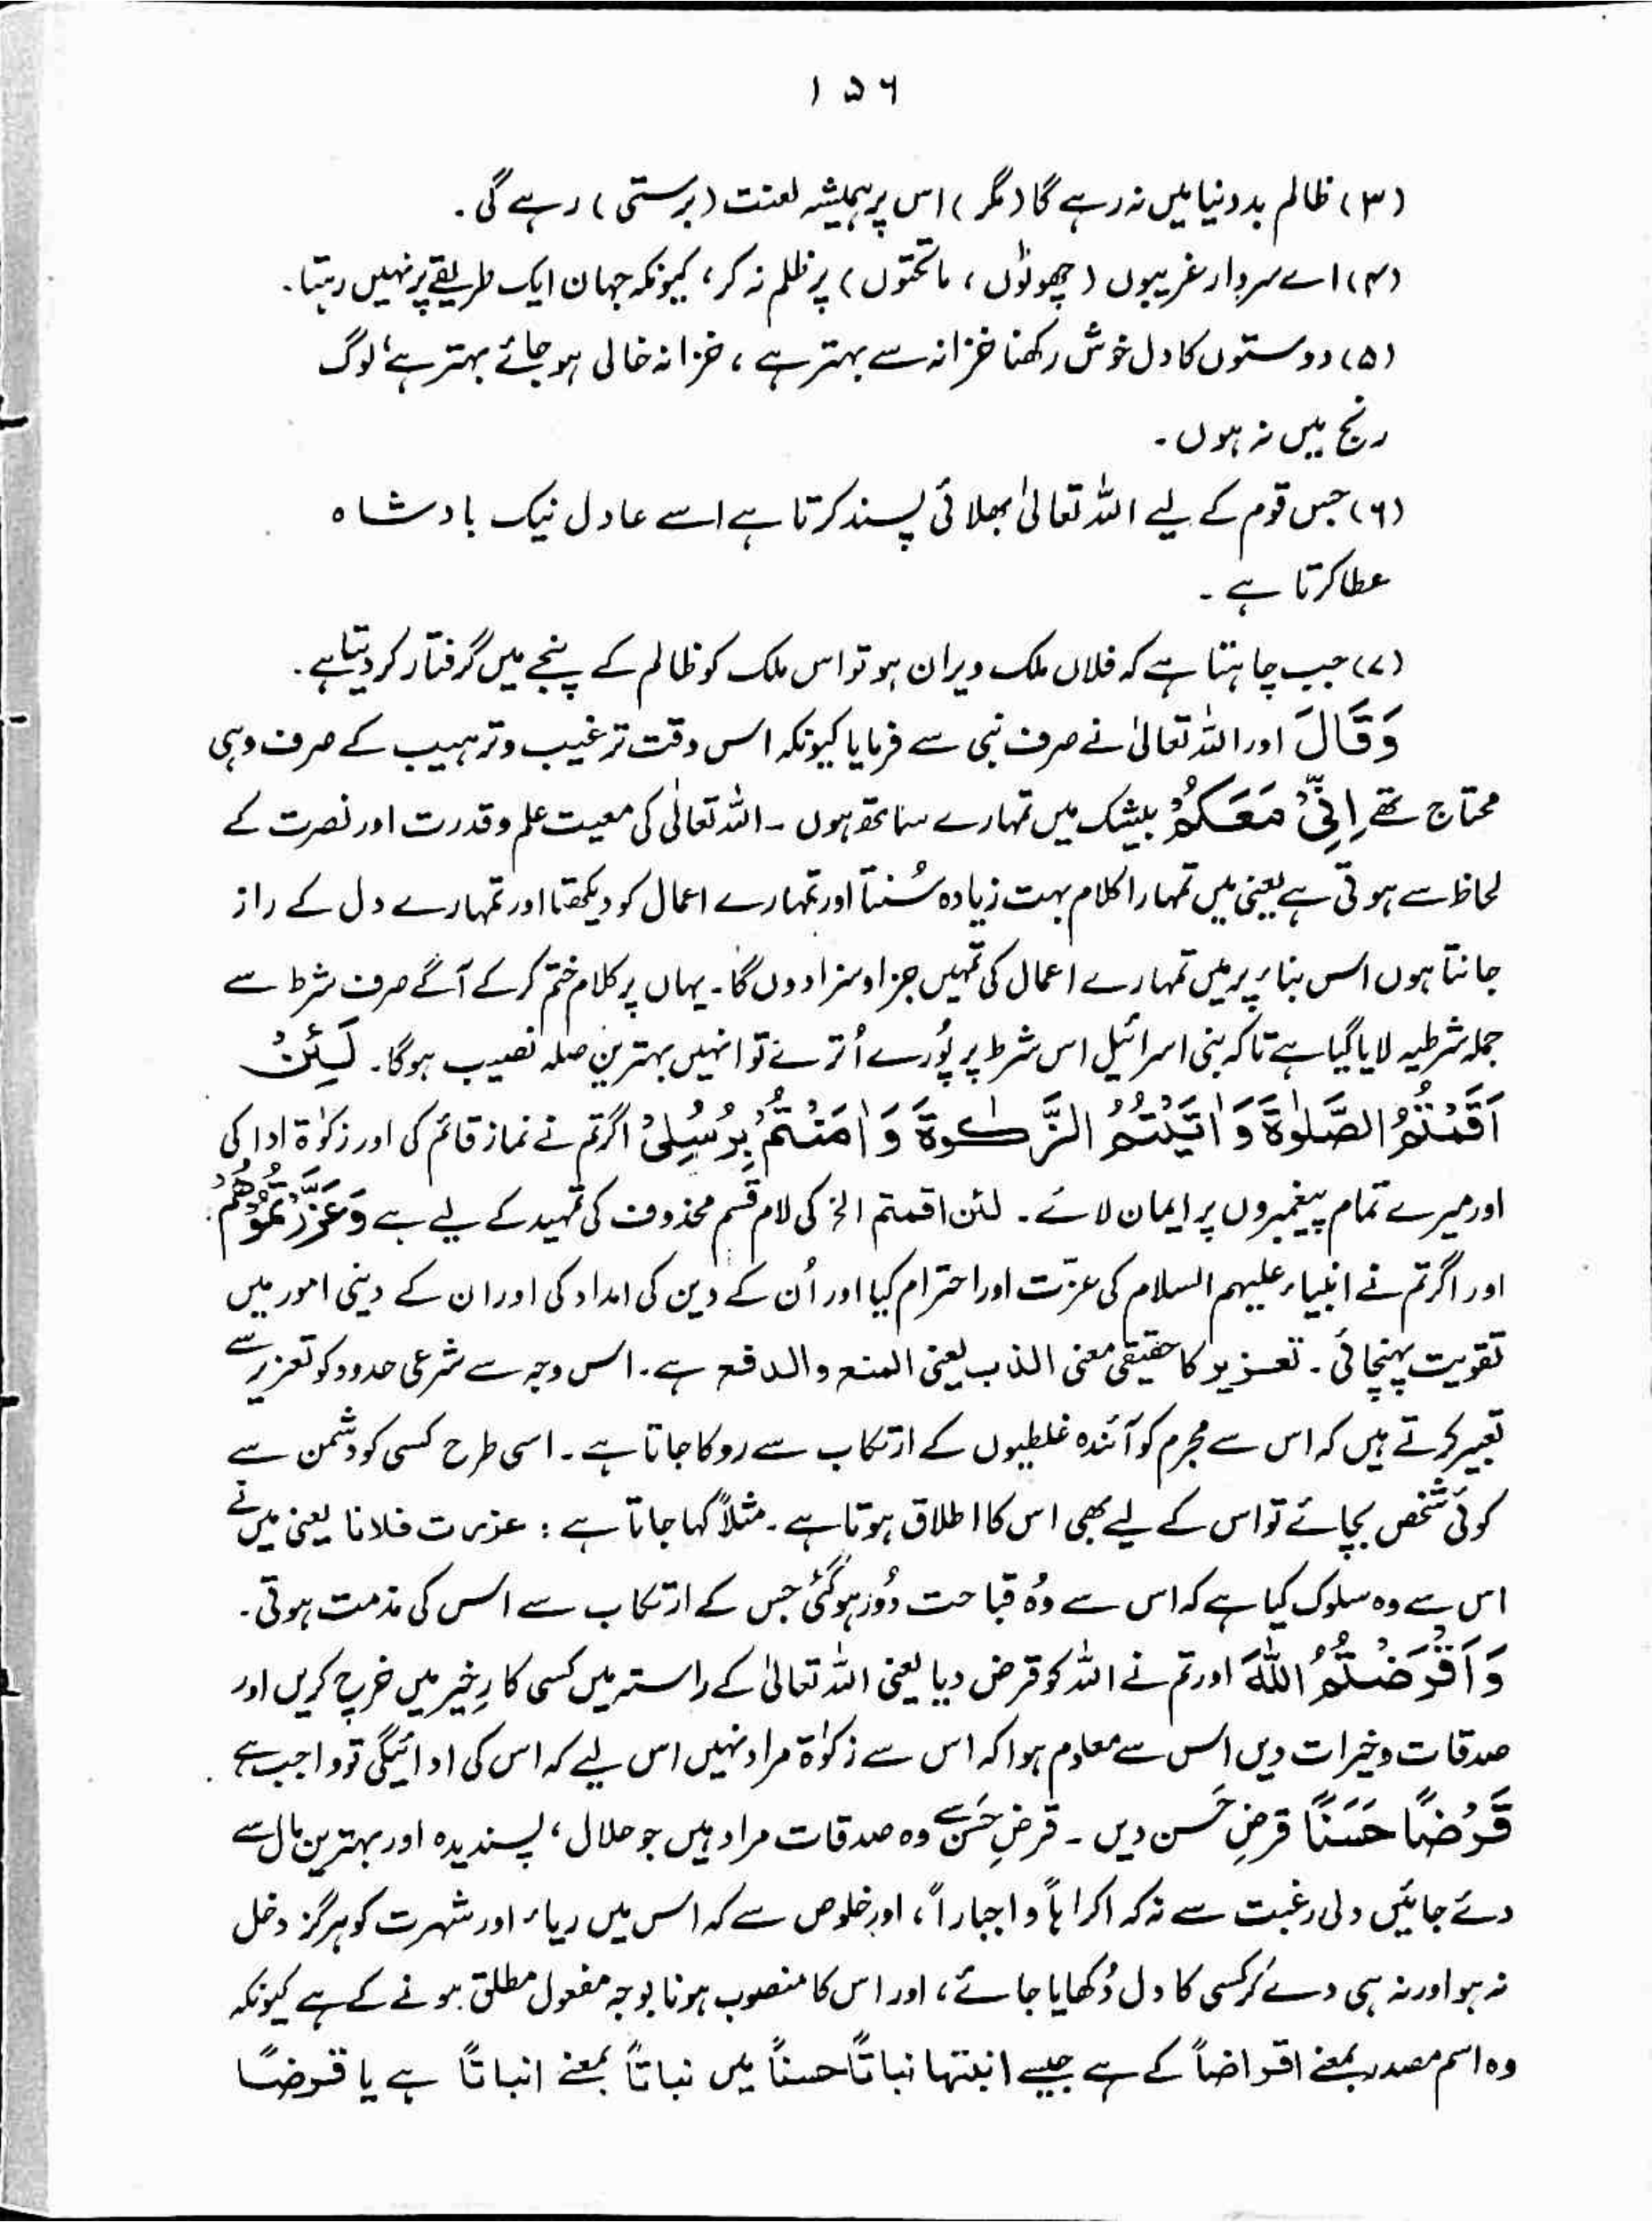 ۱۵۶
(۳) ظالم بد دنیا میں نہ رہے گا (مگر) اس پر ہمیشہ لعنت (برستی) رہے گی۔
(۴) اے سردار غریبوں (چھوٹوں، ماتحتوں) پر ظلم نہ کر، کیونکہ جہان ایک طریقے پر نہیں رہتا۔
(۵) دوستوں کا دل خوش رکھنا خزانہ سے بہتر ہے، خزانہ خالی ہو جائے بہتر ہے، لوگ
رنج میں نہ ہوں۔
(۶) جس قوم کے لیے اللہ تعالیٰ بھلائی پسند کرتا ہے اسے عادل نیک بادشاہ
عطا کرتا ہے۔
(۷) جب چاہتا ہے کہ فلاں ملک ویران ہو تو اس ملک کو ظالم کے پنجے میں گرفتار کر دیتا ہے۔
وَقَالَ اور اللہ تعالیٰ نے صرف نبی سے فرمایا کیونکہ اس وقت ترغیب و ترہیب کے صرف وہی
محتاج تھے اِنِّیْ مَعَکُمْ بیشک میں تمہارے ساتھ ہوں۔ اللہ تعالیٰ کی معیت علم و قدرت اور نصرت کے
لحاظ سے ہوتی ہے یعنی میں تمہارا کلام بہت زیادہ سُنتا اور تمہارے اعمال کو دیکھتا اور تمہارے دل کے راز
جانتا ہوں اس بناء پر میں تمہارے اعمال کی تمہیں جزا و سزا دوں گا۔ یہاں پر کلام ختم کر کے آگے صرف شرط سے
جملہ شرطیہ لایا گیا ہے تاکہ بنی اسرائیل اس شرط پر پُورے اُترے تو انہیں بہترین صلہ نصیب ہوگا۔ لَئِنْ
اَقَمْتُمُ الصَّلٰوۃَ وَاٰتَیْتُمُ الزَّکٰوۃَ وَاٰمَنْتُمْ بِرُسُلِیْ اگر تم نے نماز قائم کی اور زکوٰۃ ادا کی
اور میرے تمام پیغمبروں پر ایمان لائے۔ لئن اقمتم الخ کی لام قسم محذوف کی تمہید کے لیے ہے وَعَزَّرْتُمُوْھُمْ
اور اگر تم نے انبیاء علیہم السلام کی عزّت اور احترام کیا اور اُن کے دین کی امداد کی اور ان کے دینی امور میں
تقویت پہنچائی۔ تعزیر کا حقیقی معنی الذب یعنی المنع والدفع ہے۔ اس وجہ سے شرعی حدود کو تعزیر سے
تعبیر کرتے ہیں کہ اس سے مجرم کو آئندہ غلطیوں کے ارتکاب سے روکا جاتا ہے۔ اسی طرح کسی کو دشمن سے
کوئی شخص بچائے تو اس کے لیے بھی اس کا اطلاق ہوتا ہے۔ مثلاً کہا جاتا ہے : عزرت فلانا یعنی میں نے
اس سے وہ سلوک کیا ہے کہ اس سے وُہ قباحت دُور ہو گئی جس کے ارتکاب سے اس کی مذمت ہوتی۔
وَاَقْرَضْتُمُ اللّٰہَ اور تم نے اللہ کو قرض دیا یعنی اللہ تعالیٰ کے راستہ میں کسی کارِ خیر میں خرچ کریں اور
صدقات و خیرات دیں اس سے معلوم ہوا کہ اس سے زکوٰۃ مراد نہیں اس لیے کہ اس کی ادائیگی تو واجب ہے۔
قَرْضًا حَسَنًا قرضِ حَسن دیں۔ قرضِ حَسن سے وہ صدقات مراد ہیں جو حلال، پسندیدہ اور بہترین مال سے
دئے جائیں دلی رغبت سے نہ کہ اکراہاً و اجباراً، اور خلوص سے کہ اس میں ریاء اور شہرت کو ہرگز دخل
نہ ہو اور نہ ہی دے کر کسی کا دل دُکھایا جائے، اور اس کا منصوب ہونا بوجہ مفعول مطلق ہونے کے ہے کیونکہ
وہ اسم مصدر بمعنے اقراضاً کے ہے جیسے انبتہا نباتاً حسناً میں نباتاً بمعنے انباتاً ہے یا قرضًا